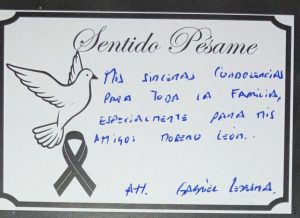 Sentido Pésame
Mis sinceras condolencias
para toda la familia,
especialmente para mis
amigos Moreno León..
Att. Gabriel Ledesma.